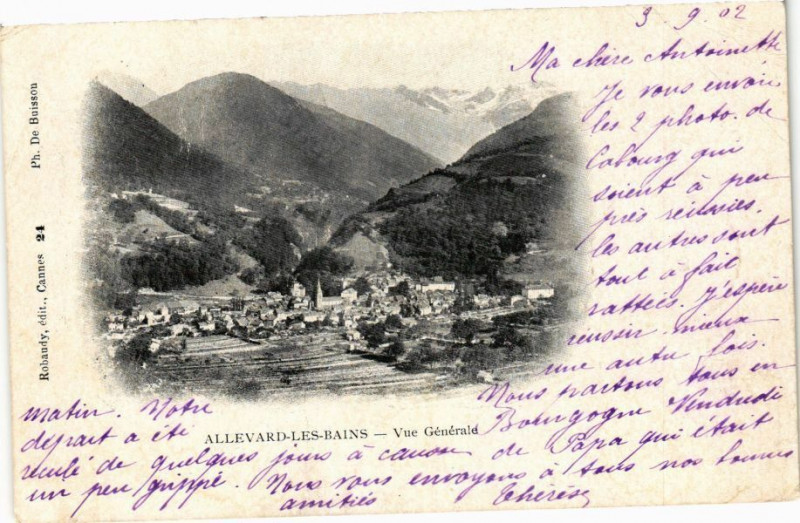 3. 9. 02
Ma chère Antoinette
Je vous envoie
les 2 photo. de
Cabourg qui
soient à peu
près réussies.
les autres sont
tout à fait
ratteés. J'espère
réussir mieux
une autre fois.
Nous partons tous en
Bourgogne Vendredi
matin. Notre
départ a été
reculé de quelques jours à cause de Papa qui était
un peu grippé. Nous vous envoyons à tous nos bonnes
amitiés Thérèse
ALLEVARD-LES-BAINS — Vue Générale
Robaudy, édit., Cannes 24 Ph. De Buisson